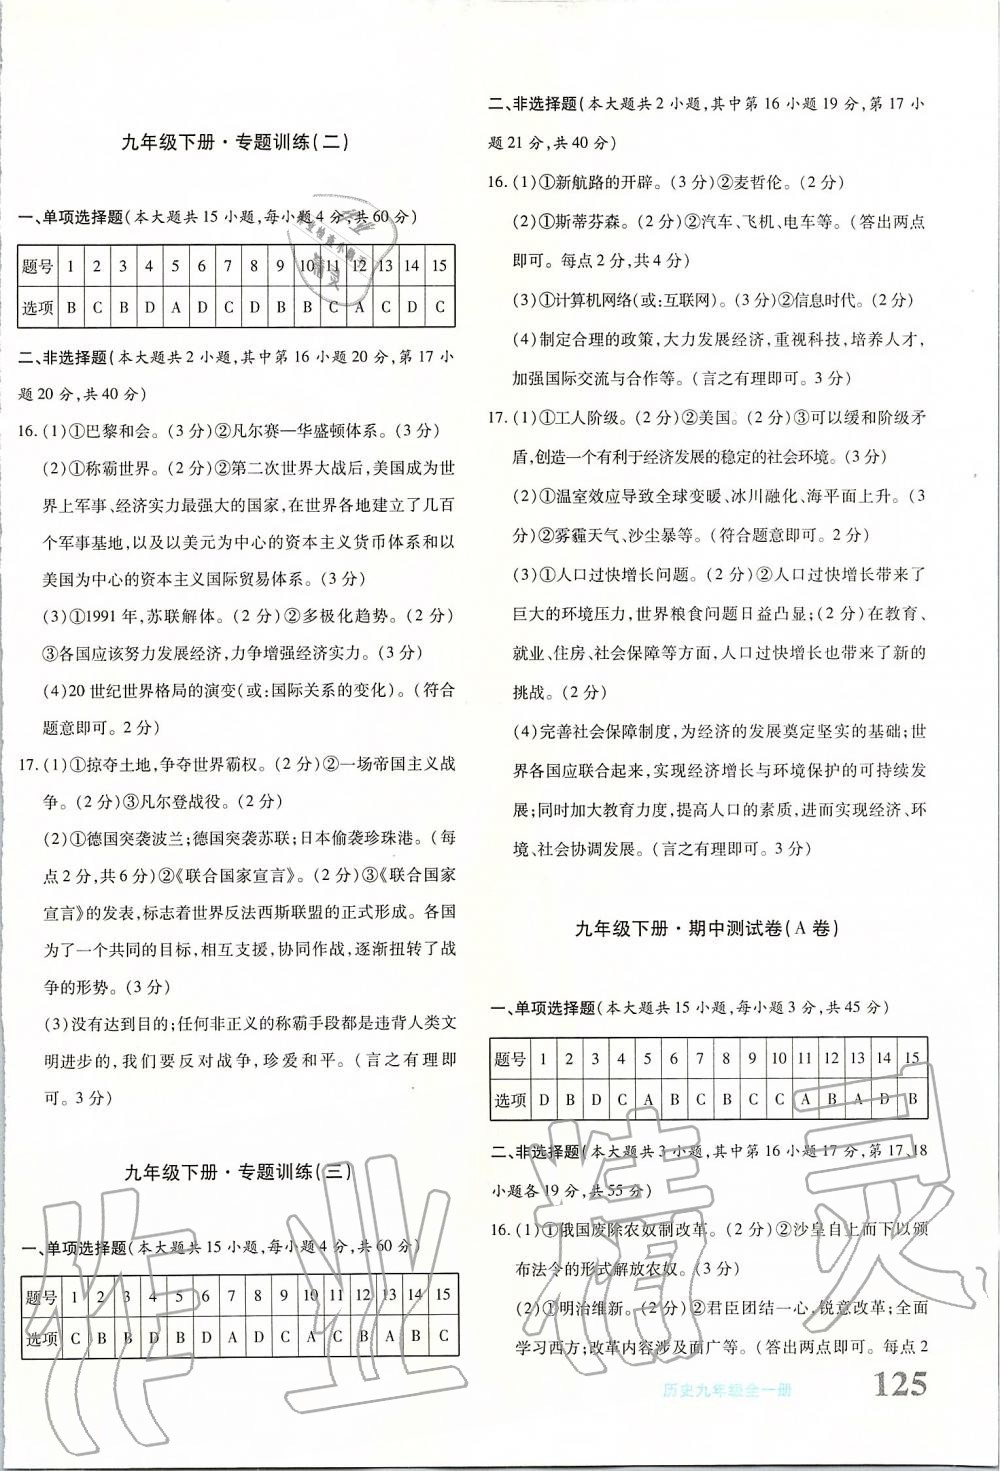 九年级下册·专题训练(二)
一、单项选择题(本大题共15小题,每小题4分,共60分)
题号 1 2 3 4 5 6 7 8 9 10 11 12 13 14 15
选项 B C B D A D C D B B C A C D C
二、非选择题(本大题共2小题,其中第16小题20分,第17小
题20分,共40分)
16.(1)①巴黎和会。(3分)②凡尔赛—华盛顿体系。(3分)
(2)①称霸世界。(2分)②第二次世界大战后,美国成为世
界上军事、经济实力最强大的国家,在世界各地建立了几百
个军事基地,以及以美元为中心的资本主义货币体系和以
美国为中心的资本主义国际贸易体系。(3分)
(3)①1991年,苏联解体。(2分)②多极化趋势。(2分)
③各国应该努力发展经济,力争增强经济实力。(3分)
(4)20世纪世界格局的演变(或:国际关系的变化)。(符合
题意即可。2分)
17.(1)①掠夺土地,争夺世界霸权。(2分)②一场帝国主义战
争。(2分)③凡尔登战役。(2分)
(2)①德国突袭波兰;德国突袭苏联;日本偷袭珍珠港。(每
点2分,共6分)②《联合国家宣言》。(2分)③《联合国家
宣言》的发表,标志着世界反法西斯联盟的正式形成。各国
为了一个共同的目标,相互支援,协同作战,逐渐扭转了战
争的形势。(3分)
(3)没有达到目的;任何非正义的称霸手段都是违背人类文
明进步的,我们要反对战争,珍爱和平。(言之有理即
可。3分)
九年级下册·专题训练(三)
一、单项选择题(本大题共15小题,每小题4分,共60分)
题号 1 2 3 4 5 6 7 8 9 10 11 12 13 14 15
选项 C B B D B D A D C A C B A B C
二、非选择题(本大题共2小题,其中第16小题19分,第17小
题21分,共40分)
16.(1)①新航路的开辟。(3分)②麦哲伦。(2分)
(2)①斯蒂芬森。(2分)②汽车、飞机、电车等。(答出两点
即可。每点2分,共4分)
(3)①计算机网络(或:互联网)。(3分)②信息时代。(2分)
(4)制定合理的政策,大力发展经济,重视科技,培养人才,
加强国际交流与合作等。(言之有理即可。3分)
17.(1)①工人阶级。(2分)②美国。(2分)③可以缓和阶级矛
盾,创造一个有利于经济发展的稳定的社会环境。(3分)
(2)①温室效应导致全球变暖、冰川融化、海平面上升。(3
分)②雾霾天气、沙尘暴等。(符合题意即可。2分)
(3)①人口过快增长问题。(2分)②人口过快增长带来了
巨大的环境压力,世界粮食问题日益凸显;(2分)在教育、
就业、住房、社会保障等方面,人口过快增长也带来了新的
挑战。(2分)
(4)完善社会保障制度,为经济的发展奠定坚实的基础;世
界各国应联合起来,实现经济增长与环境保护的可持续发
展;同时加大教育力度,提高人口的素质,进而实现经济、环
境、社会协调发展。(言之有理即可。3分)
九年级下册·期中测试卷(A卷)
一、单项选择题(本大题共15小题,每小题3分,共45分)
题号 1 2 3 4 5 6 7 8 9 10 11 12 13 14 15
选项 D B D C A B C C B C A B A D B
二、非选择题(本大题共3小题,其中第16小题17分,第17、18
小题各19分,共55分)
16.(1)①俄国废除农奴制改革。(2分)②沙皇自上而下以颁
布法令的形式解放农奴。(3分)
(2)①明治维新。(2分)②君臣团结一心,锐意改革;全面
学习西方;改革内容涉及面广等。(答出两点即可。每点2
历史九年级全一册
125
作业精灵